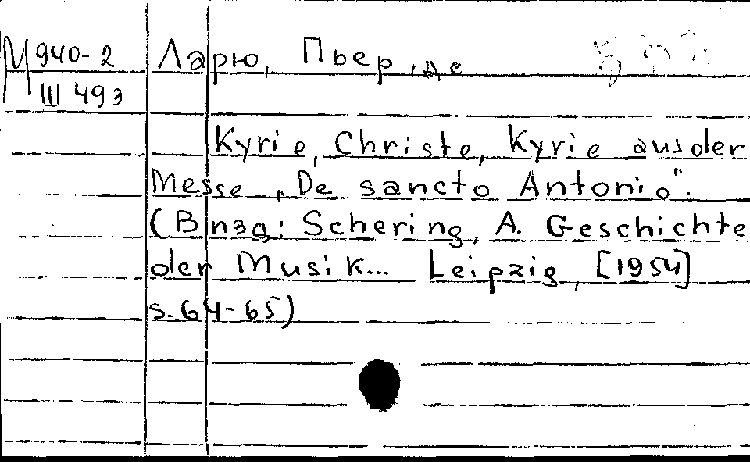 М 940-2
III 493
Ларю, Пьер, де
Kyrie, Christe, Kyrie aus der
Messe „De sancto Antonio".
(В изд: Schering, A. Geschichte
der Musik... Leipzig, [1954]
s. 64-65)